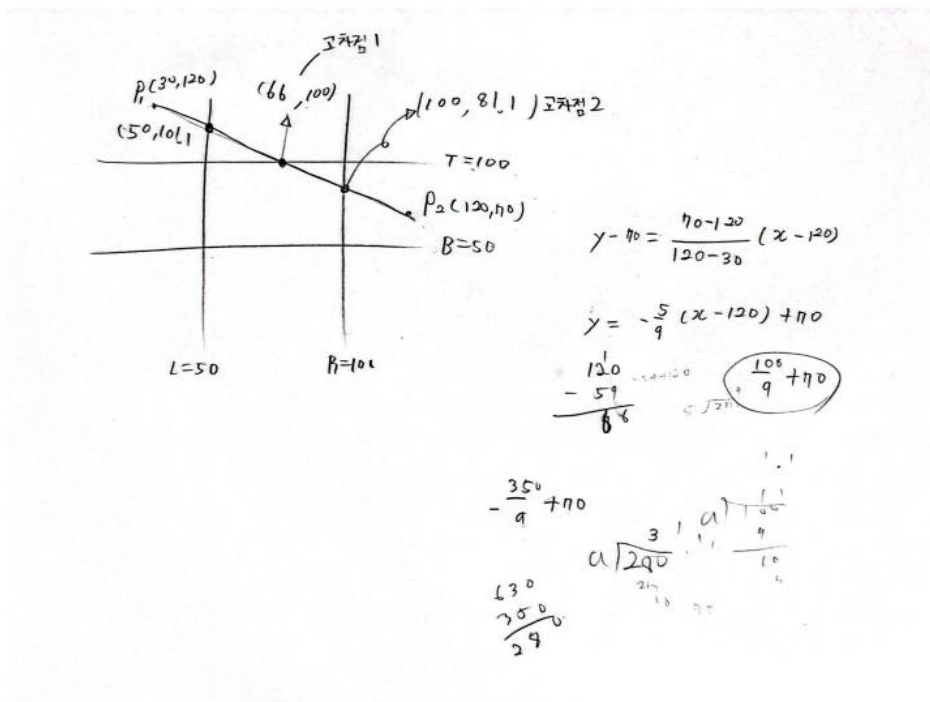 교차점1
P₁(30,120)
(66, 100)
(100, 81.1) 교차점2
(50,101,1
T=100
P₂(120,70)
B=50
L=50
R=100
y-70 = \frac{70-120}{120-30} (x-120)
y = -\frac{5}{9} (x-120) + 70
120
- 54
66
\frac{100}{9} + 70
-\frac{350}{9} + 70
3 1
9 280
630
350
28